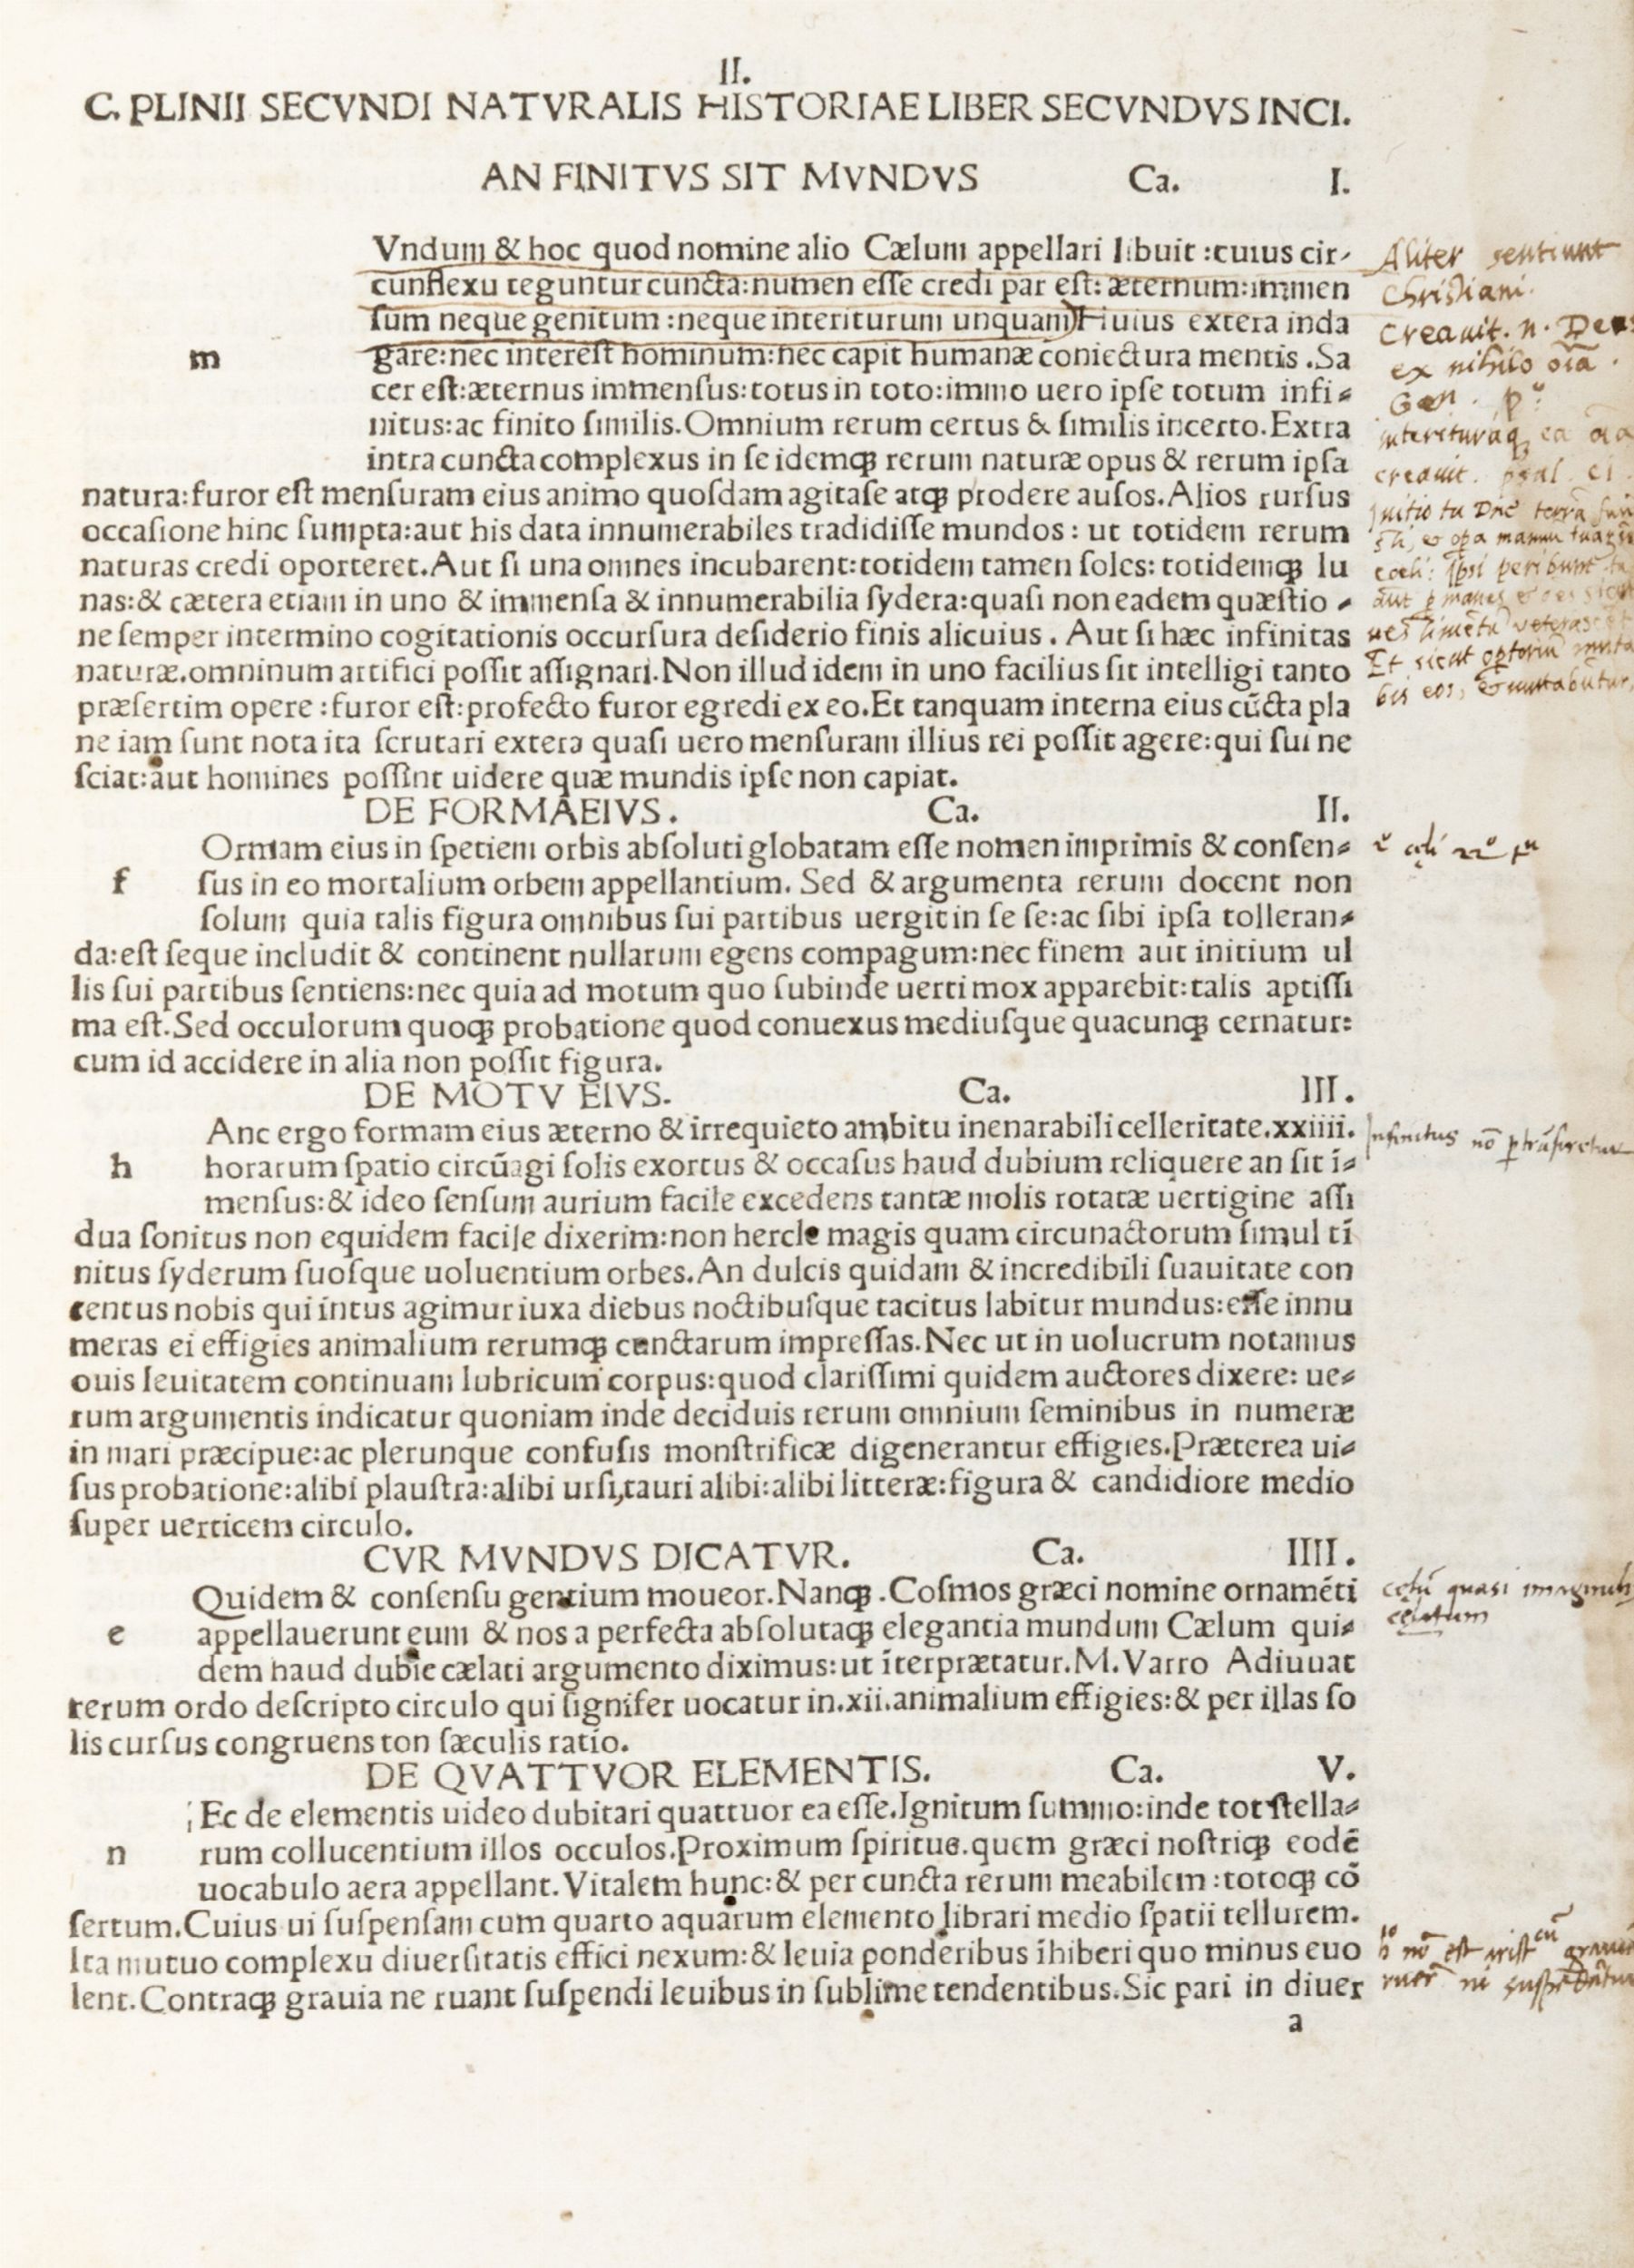 II.
C. PLINII SECVNDI NATVRALIS HISTORIAE LIBER SECVNDVS INCI.
AN FINITVS SIT MVNDVS Ca. I.
Vndum & hoc quod nomine alio Cælum appellari libuit :cuius cir-
cunflexu teguntur cuncta:numen eſſe credi par eſt: æternum:immen
ſum neque genitum :neque interiturum unquam) Huius extera inda
m gare:nec intereſt hominum:nec capit humanæ coniectura mentis .Sa
cer eſt:æternus immenſus:totus in toto:immo uero ipſe totum infi-
nitus:ac finito ſimilis.Omnium rerum certus & ſimilis incerto.Extra
intra cuncta complexus in ſe idemqꝫ rerum naturæ opus & rerum ipſa
natura:furor eſt menſuram eius animo quoſdam agitaſe atqꝫ prodere auſos.Alios rurſus
occaſione hinc ſumpta:aut his data innumerabiles tradidiſſe mundos : ut totidem rerum
naturas credi oporteret.Aut ſi una omnes incubarent:totidem tamen ſoles: totidemqꝫ lu
nas:& cætera etiam in uno & immenſa & innumerabilia ſydera:quaſi non eadem quæſtio -
ne ſemper intermino cogitationis occurſura deſiderio finis alicuius . Aut ſi hæc infinitas
naturæ.omninum artifici poſſit aſſignari.Non illud idem in uno facilius ſit intelligi tanto
præſertim opere :furor eſt:profecto furor egredi ex eo.Et tanquam interna eius cũcta pla
ne iam ſunt nota ita ſcrutari extera quaſi uero menſuram illius rei poſſit agere:qui ſui ne
ſciat:aut homines poſſint uidere quæ mundis ipſe non capiat.
DE FORMA EIVS. Ca. II.
Ormam eius in ſpetiem orbis abſoluti globatam eſſe nomen imprimis & conſen-
f ſus in eo mortalium orbem appellantium. Sed & argumenta rerum docent non
ſolum quia talis figura omnibus ſui partibus uergit in ſe ſe:ac ſibi ipſa tolleran-
da:eſt ſeque includit & continent nullarum egens compagum:nec finem aut initium ul
lis ſui partibus ſentiens:nec quia ad motum quo ſubinde uerti mox apparebit:talis aptiſſi
ma eſt.Sed occulorum quoqꝫ probatione quod conuexus mediuſque quacunqꝫ cernatur:
cum id accidere in alia non poſſit figura.
DE MOTV EIVS. Ca. III.
Anc ergo formam eius æterno & irrequieto ambitu inenarabili celleritate.xxiiii.
h horarum ſpatio circũagi ſolis exortus & occaſus haud dubium reliquere an ſit ĩ-
menſus:& ideo ſenſum aurium facile excedens tantæ molis rotatæ uertigine aſſi
dua ſonitus non equidem facile dixerim:non hercle magis quam circunactorum ſimul tĩ
nitus ſyderum ſuoſque uoluentium orbes.An dulcis quidam & incredibili ſuauitate con
centus nobis qui intus agimur iuxa diebus noctibuſque tacitus labitur mundus:eſſe innu
meras ei effigies animalium rerumqꝫ cunctarum impreſſas.Nec ut in uolucrum notamus
ouis leuitatem continuam lubricum corpus:quod clariſſimi quidem auctores dixere: ue-
rum argumentis indicatur quoniam inde deciduis rerum omnium ſeminibus in numeræ
in mari præcipue:ac plerunque confuſis monſtrificæ digenerantur effigies.Præterea ui-
ſus probatione:alibi plauſtra:alibi urſi,tauri alibi:alibi litteræ:figura & candidiore medio
ſuper uerticem circulo.
CVR MVNDVS DICATVR. Ca. IIII.
Quidem & conſenſu gentium moueor.Nanqꝫ .Coſmos græci nomine ornamẽti
e appellauerunt eum & nos a perfecta abſolutaqꝫ elegantia mundum Cælum qui-
dem haud dubie cælati argumento diximus:ut ĩterprætatur.M.Varro Adiuuat
rerum ordo deſcripto circulo qui ſignifer uocatur in.xii.animalium effigies:& per illas ſo
lis curſus congruens ton ſæculis ratio.
DE QVATTVOR ELEMENTIS. Ca. V.
Ec de elementis uideo dubitari quattuor ea eſſe.Ignitum ſummo:inde tot ſtella-
n rum collucentium illos occulos.Proximum ſpiritus.quem græci noſtriqꝫ eodẽ
uocabulo aera appellant.Vitalem hunc:& per cuncta rerum meabilem :totoqꝫ cõ
ſertum.Cuius ui ſuſpenſam cum quarto aquarum elemento librari medio ſpatii tellurem.
Ita mutuo complexu diuerſitatis effici nexum:& leuia ponderibus ĩhiberi quo minus euo
lent.Contraqꝫ grauia ne ruant ſuſpendi leuibus in ſublime tendentibus.Sic pari in diuer
a
Aliter sentiunt
Christiani.
Creauit. n. Deus
ex nihilo oĩa .
Gen. p°
creauit. psal.
Initio tu Dñe terrã
Et sicut
bis eos, & mutabũtur
Infinitus nõ
quasi
cęlatum
nõ est